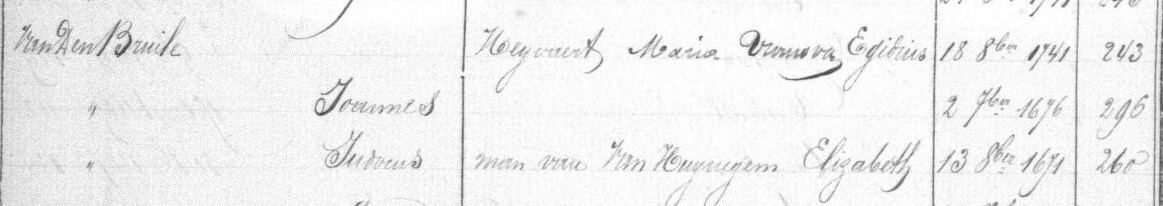 Van Den Bruile Heyvaert Maria Vrouw van Egidius 18 8ber 1741 243
" Joannes 2 7ber 1676 296
" Judocus man van Van Huynegem Elizabeth 13 8ber 1671 260